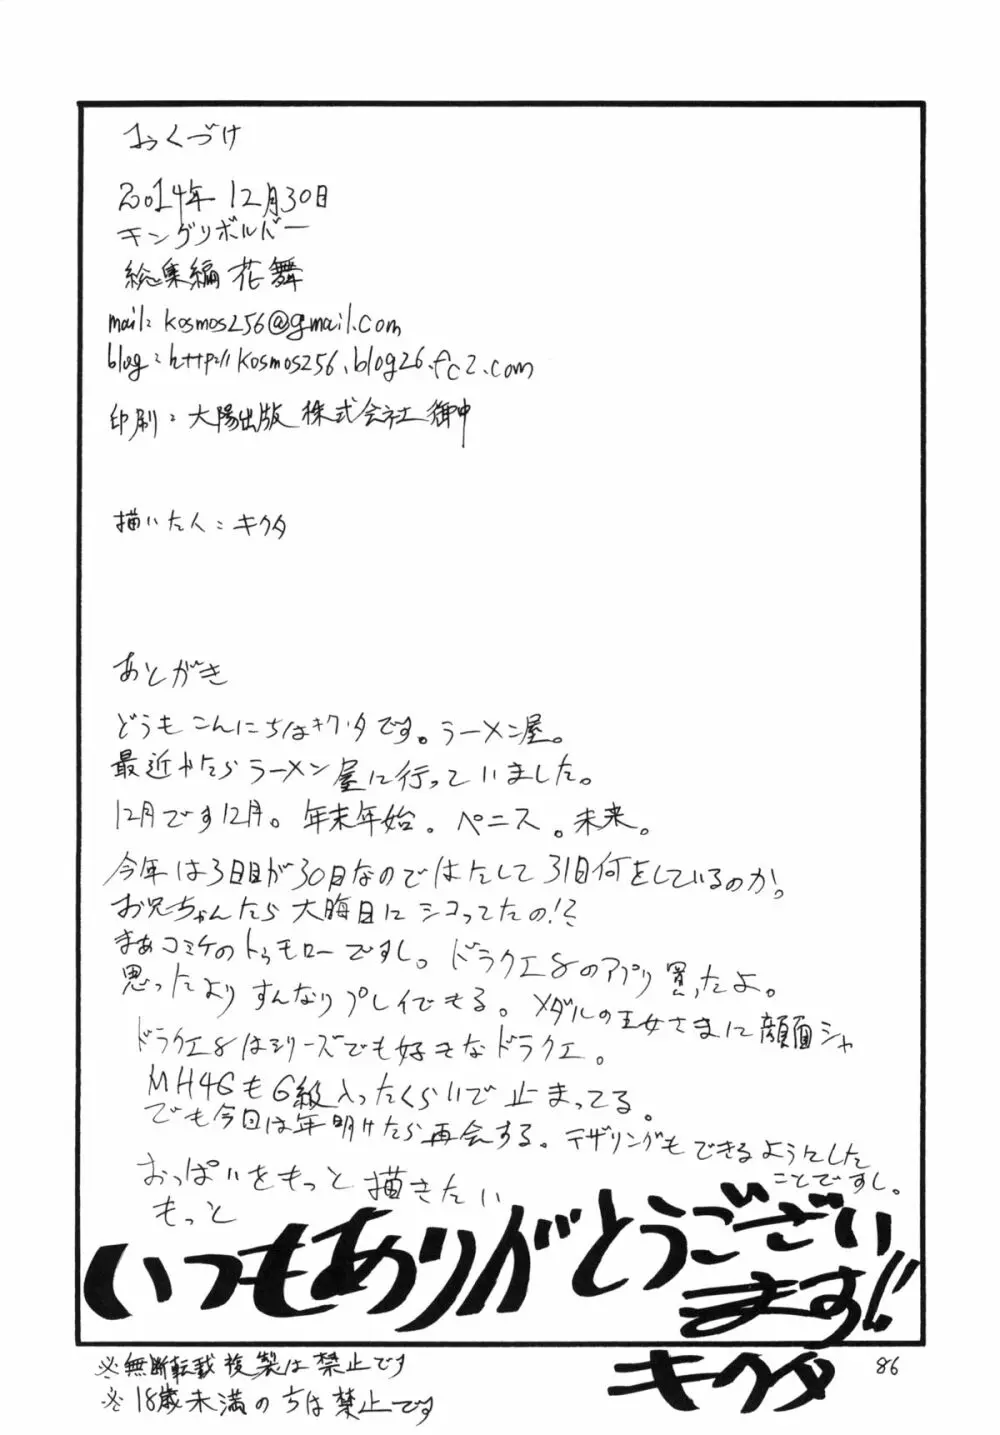 おくづけ
2014年12月30日
キングリボルバー
総集編 花舞
mail: kosmos256@gmail.com
blog: http://kosmos256.blog26.fc2.com
印刷: 大陽出版 株式会社 御中
描いた人: キクタ
あとがき
どうもこんにちはキクタです。ラーメン屋。
最近やたらラーメン屋に行っていました。
12月です12月。年末年始。ペニス。未来。
今年は3日目が30日なのではたして31日何をしているのか。
お兄ちゃんたら大晦日にシコってたの!?
まぁコミケのトゥモローですし。ドラクエ8のアプリ買ったよ。
思ったよりすんなりプレイできる。メダルの王女さまに顔面シャ
ドラクエ8はシリーズでも好きなドラクエ。
MH4GもG級入ったくらいで止まってる。
でも今回は年明けたら再会する。テザリングもできるようにした
ことですし。
おっぱいをもっと描きたい
もっと
いつもありがとうござい
ます!!
キクタ
86
※無断転載複製は禁止です
※18歳未満のちは禁止です